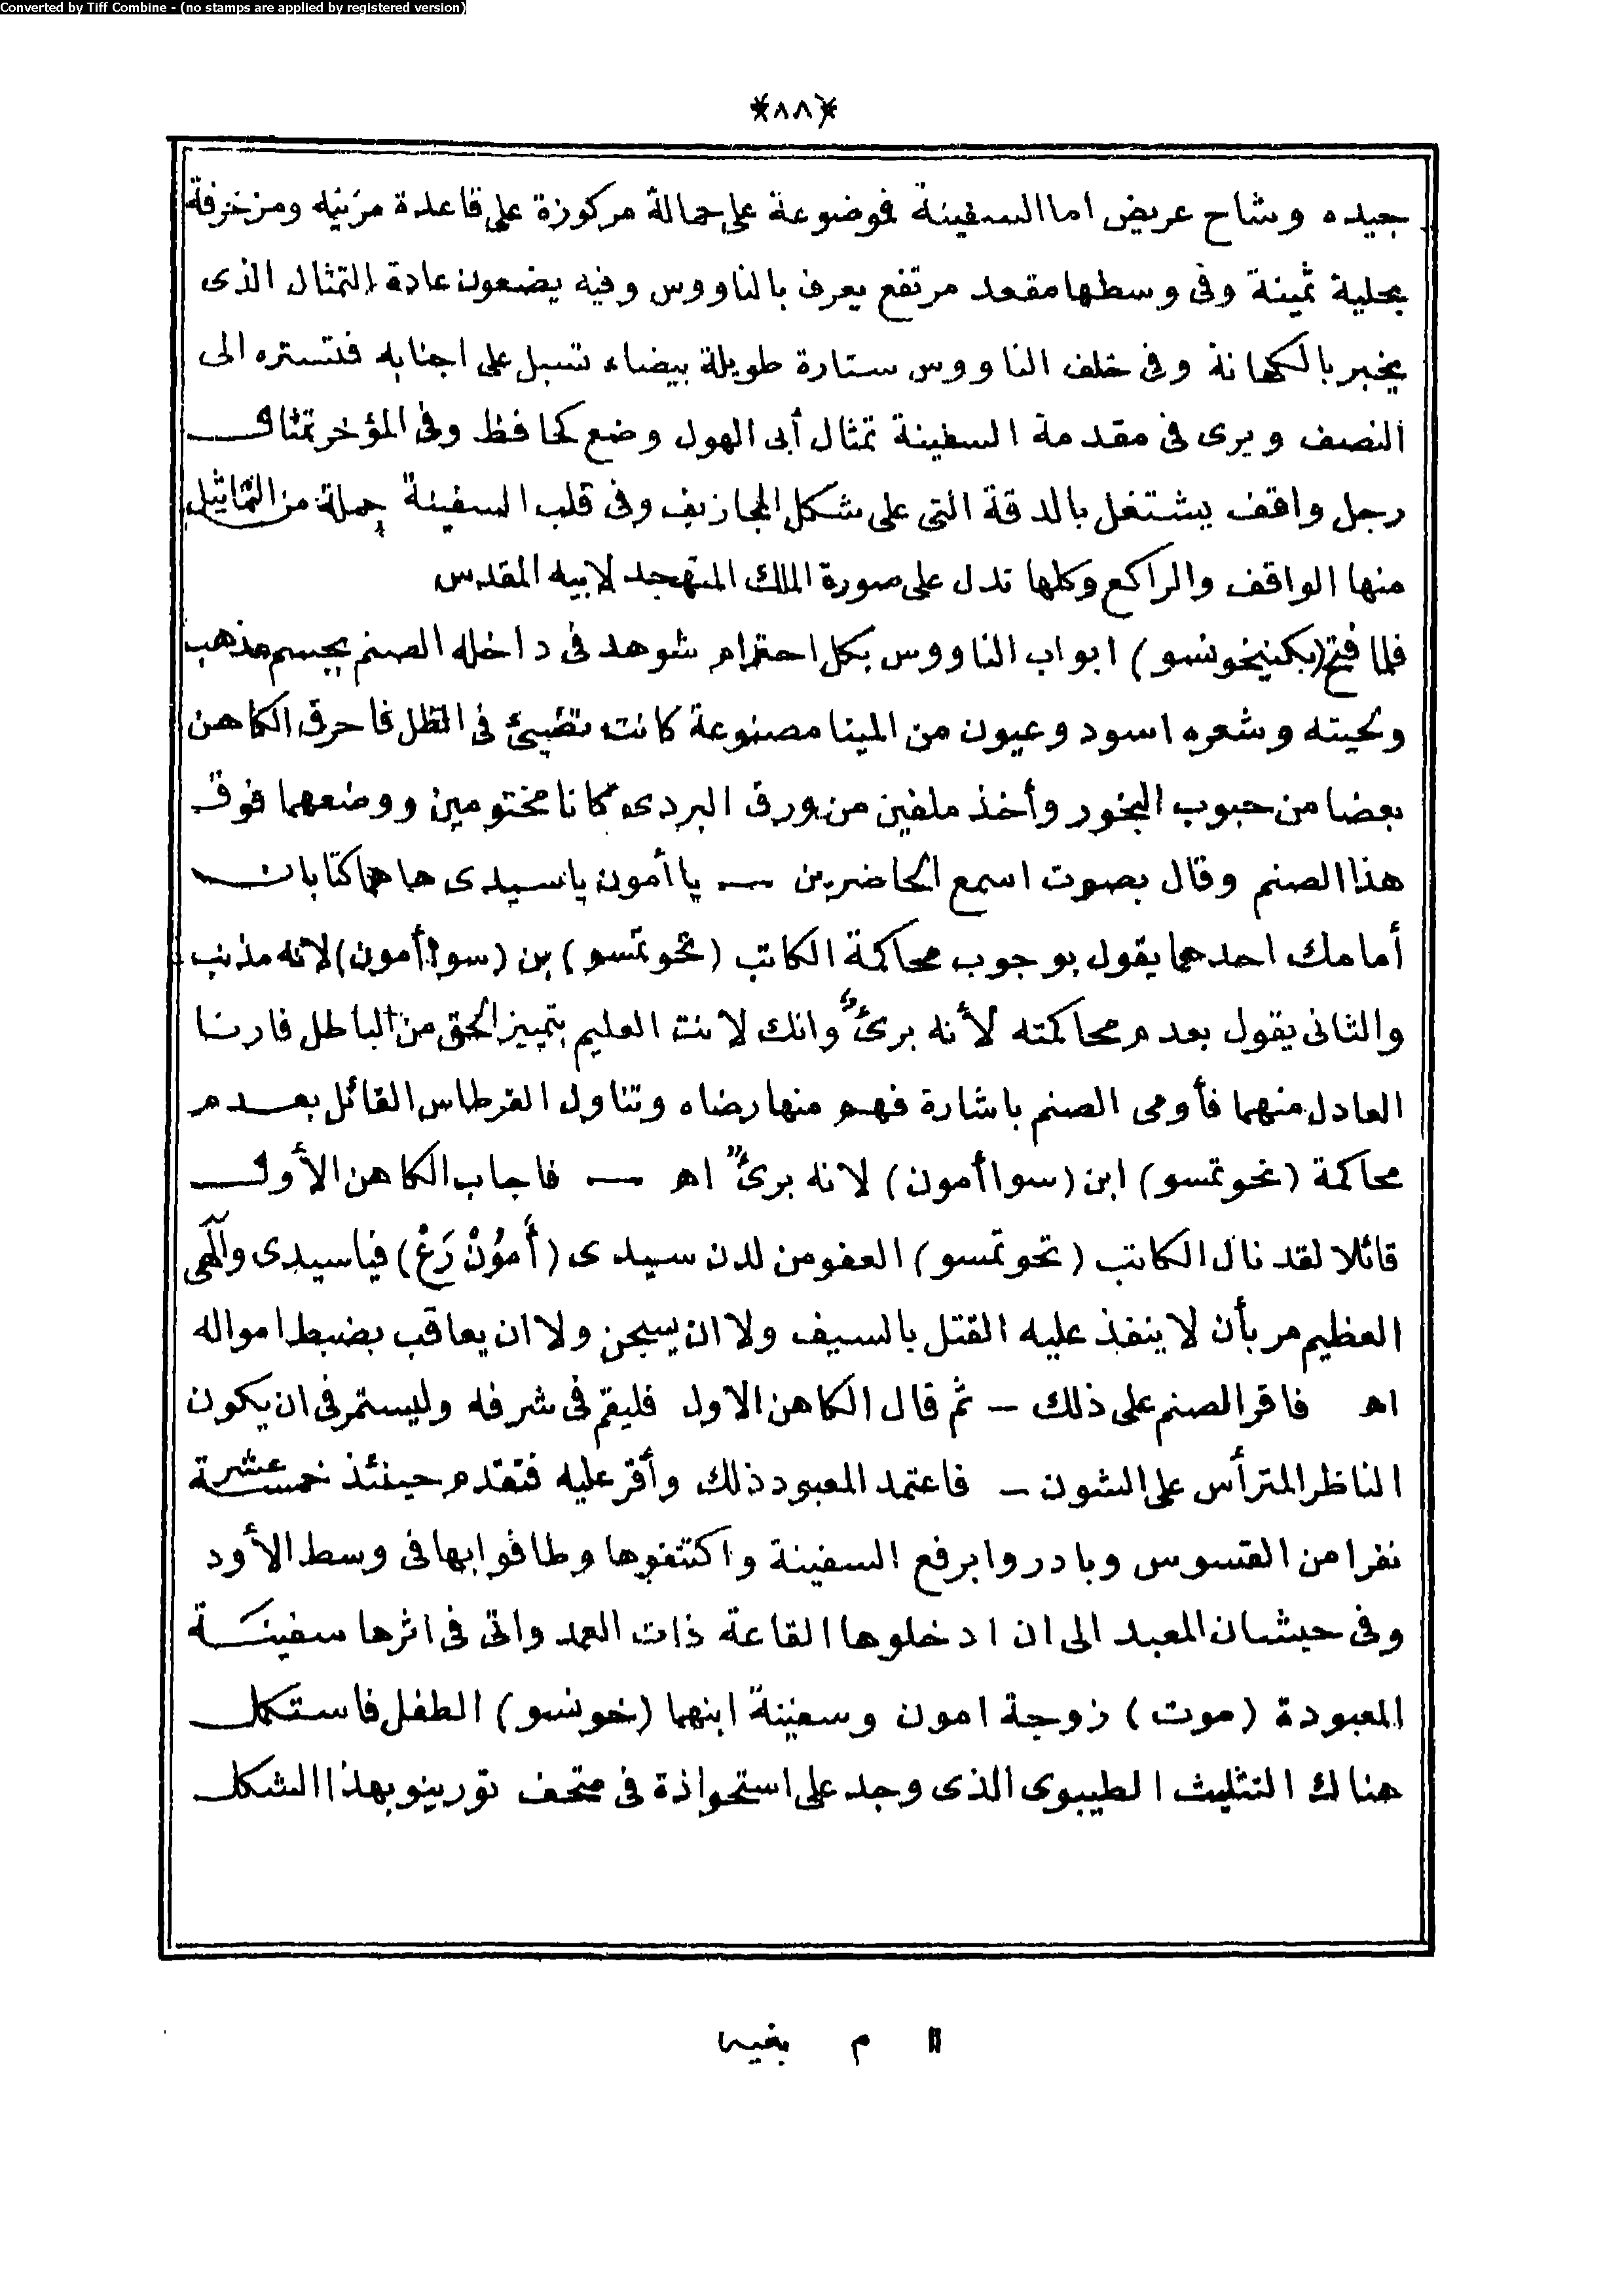 Converted by Tiff Combine - (no stamps are applied by registered version)
*(٨٨)*
بجيده وشاح عريض اما السفينة فموضوعة على حمالة مركوزة على قاعدة مزينه ومزخرفة
بحلية ثمينة وفى وسطها مقعد مرتفع يعرف بالناووس وفيه يضعون عادة التمثال الذى
يخبر بالكهانة وفى خلف الناووس ستارة طويلة بيضاء تسبل على اجنابه فتستره الى
النصف ويرى فى مقدمة السفينة تمثال أبى الهول وضع كحافظ وفى المؤخر تمثال
رجل واقف يشتغل بالدقة التى على شكل المجازيف وفى قلب السفينة جملة من التماثيل
منها الواقف والراكع وكلها تدل على صورة الملك المتهجد لابيه المقدس
فلما فتح (بكنيخونسو) ابواب الناووس بكل احترام شوهد فى داخله الصنم بجسم مذهب
ولحيته وشعره اسود وعيون من المينا مصنوعة كانت تضيئ فى الظل فاحرق الكاهن
بعضا من حبوب البخور وأخذ ملفين من ورق البردى كانا مختومين ووضعهما فوق
هذا الصنم وقال بصوت اسمع الحاضرين — يا أمون يا سيدى ها هما كتابان
أمامك احدهما يقول بوجوب محاكمة الكاتب (تحوتمسو) بن (سوا أمون) لانه مذنب
والثانى يقول بعدم محاكمته لأنه برئ وانك لانت العليم بتمييز الحق من الباطل فارنا
العادل منهما فأومى الصنم باشارة فهم منها رضاه وتناول القرطاس القائل بعدم
محاكمة (تحوتمسو) ابن (سوا أمون) لانه برئ اهـ — فاجاب الكاهن الأول
قائلا لقد نال الكاتب (تحوتمسو) العفو من لدن سيدى (أَمُوْنْ رَعْ) فيا سيدى وآلهى
العظيم مر بأن لا ينفذ عليه القتل بالسيف ولا ان يسجن ولا ان يعاقب بضبط امواله
اهـ فاقر الصنم على ذلك — ثم قال الكاهن الاول فليقم فى شرفه وليستمر فى ان يكون
الناظر المترأس على الشون — فاعتمد المعبود ذلك وأقر عليه فتقدم حينئذ خمسة عشرة
نفرا من القسوس وبادروا برفع السفينة واكتنفوها وطافوا بها فى وسط الأود
وفى حيشان المعبد الى ان ادخلوها القاعة ذات العمد واتى فى اثرها سفينة
المعبودة (موت) زوجة امون وسفينة ابنهما (خونسو) الطفل فاستكمل
هناك التثليث الطيبوى الذى وجد على استحواذة فى متحف تورينو بهذا الشكل
١١ م بغيه